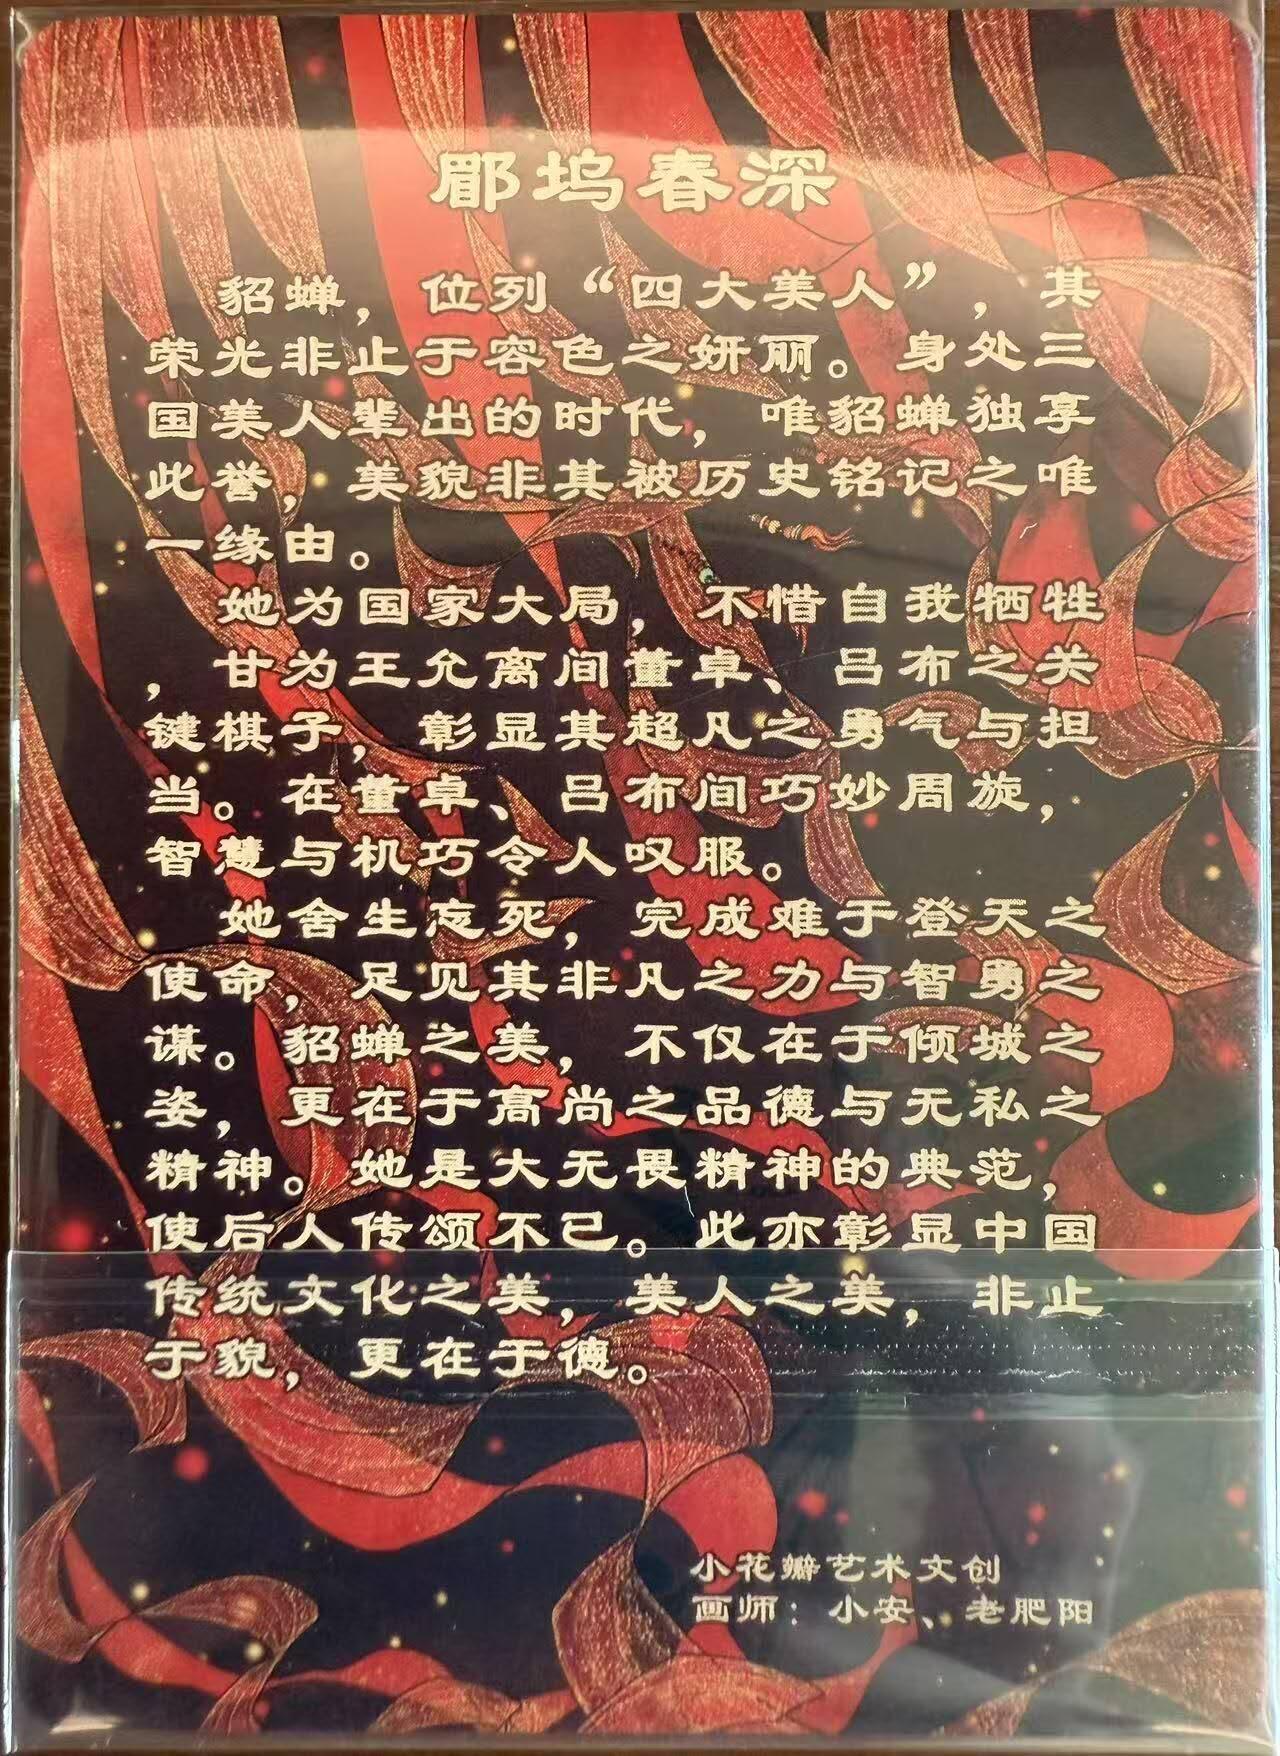 郿坞春深
貂蝉，位列“四大美人”，其
荣光非止于容色之妍丽。身处三
国美人辈出的时代，唯貂蝉独享
此誉，美貌非其被历史铭记之唯
一缘由。
她为国家大局，不惜自我牺牲
，甘为王允离间董卓、吕布之关
键棋子，彰显其超凡之勇气与担
当。在董卓、吕布间巧妙周旋，
智慧与机巧令人叹服。
她舍生忘死，完成难于登天之
使命，足见其非凡之力与智勇之
谋。貂蝉之美，不仅在于倾城之
姿，更在于高尚之品德与无私之
精神。她是大无畏精神的典范，
使后人传颂不已。此亦彰显中国
传统文化之美，美人之美，非止
于貌，更在于德。
小花瓣艺术文创
画师：小安、老肥阳